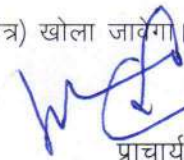 त्र) खोला जावेगा।
प्राचार्य